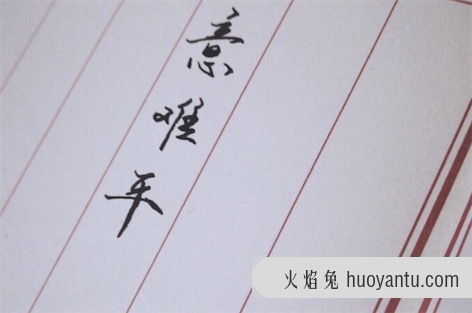 意难平
火焰兔 huoyantu.com